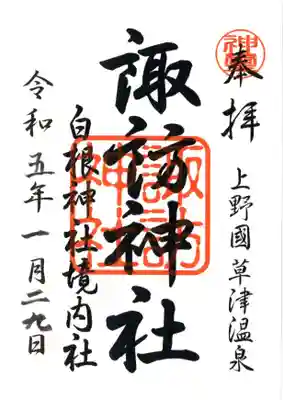 奉拝
上野國草津温泉
諏訪神社
白根神社境内社
令和五年一月二九日
諏訪
神社